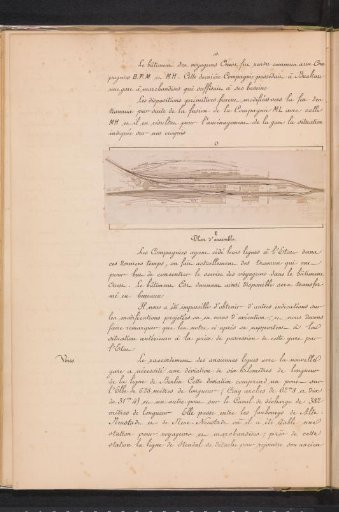 Le bâtiment des voyageurs Ouest fut rendu commun aux Com-
pagnies B.P.M. et M.H. Cette dernière Compagnie possédait à Buckau
une gare à marchandises qui suffisait à ses besoins
Les dispositions primitives furent modifiées vers la fin des
travaux par suite de la fusion de la Compagnie M.L. avec celle
M.H. et il en résulta pour l'aménagement de la gare la situation
indiquée sur ce croquis
Plan d'ensemble
Les Compagnies ayant cédé leurs lignes à l'Etat dans
ces derniers temps, on fait actuellement des travaux qui ont
pour but de concentrer le service des voyageurs dans le bâtiment
Ouest. Le bâtiment Est devenu ainsi disponible sera transfor-
mé en bureaux
Il nous a été impossible d'obtenir d'autres indications sur
les modifications projetées ou en cours d'exécution, et nous devons
faire remarquer que les notes ci après se rapportent à la
situation antérieure à la prise de possession de cette gare par
l'Etat.
Voies
Le raccordement des anciennes lignes avec la nouvelle
gare a nécessité une déviation de six kilomètres de longueur
de la ligne de Berlin. Cette déviation comprend un pont sur
l'Elbe de mètres de longueur
et un autre pont sur le Canal de décharge de
mètres de longueur. Elle passe entre les faubourgs de Alte
Neustadt et de Neue-Neustadt où il a été établi une
station pour voyageurs et marchandises; près de cette
station la ligne de Stendal se détache pour rejoindre son ancien